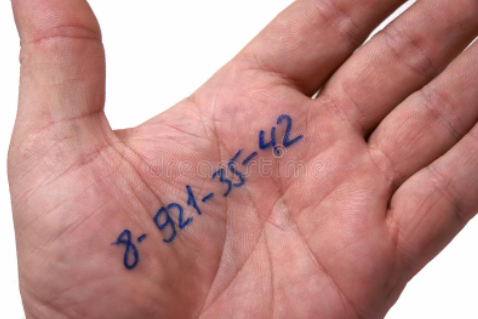 8-921-35-42
dreamstime